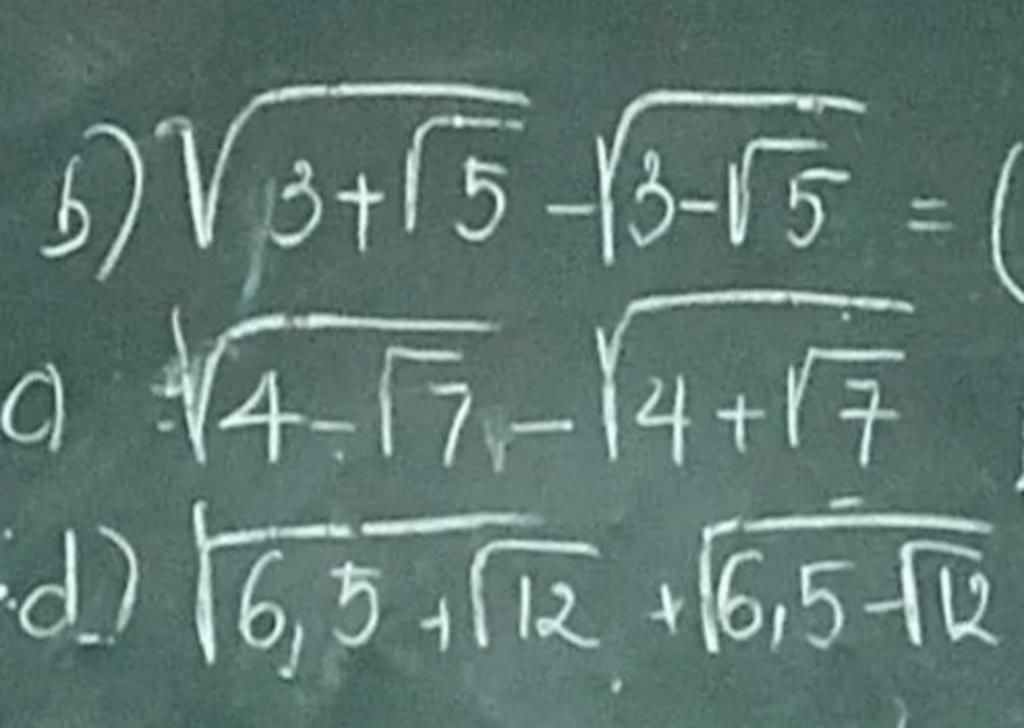 b) √(3+√5) - √(3-√5) = (
a √(4-√7) - √(4+√7)
d) √(6,5+√12) + √(6,5-√12)